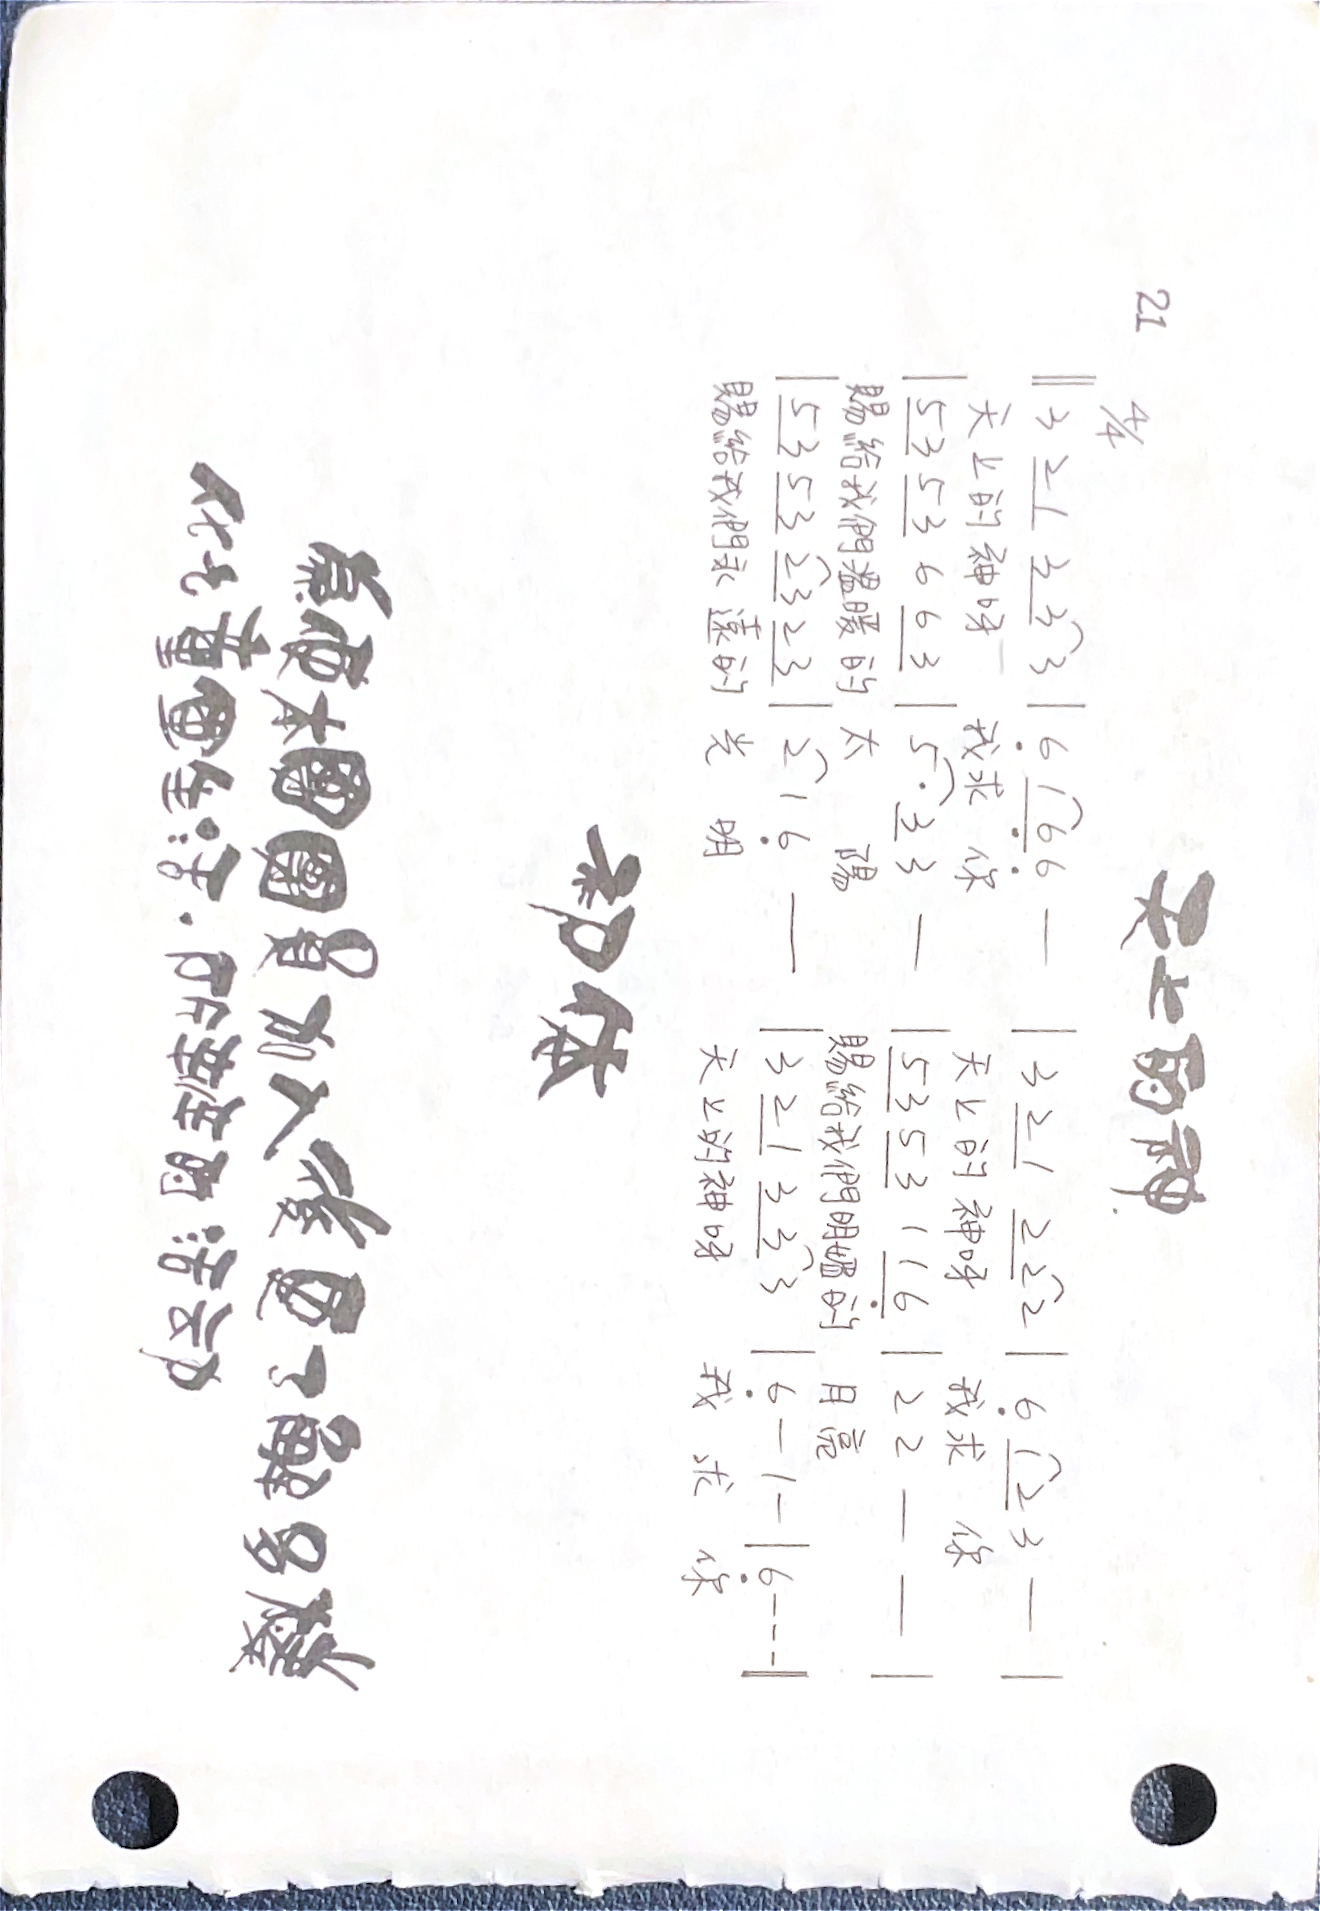 天上的神
21 4/4
‖3 21 33 3|6 1 66 —|3 21 22 2|6 12 3 —|
天上的神呀 我求 你 天上的神呀 我求 你
|53 53 6 63|5·33 —|53 53 1 16|22 — —|
賜給我們溫暖的 太 陽 賜給我們明媚的 月亮
|53 53 23 23|2 1 6 —|3 21 33 3|6-1-|6---‖
賜給我們永遠的 光 明 天上的神呀 我 求 你
初体
為使本團團員加入後更了解多樣
化之童軍生活.所辦的活动